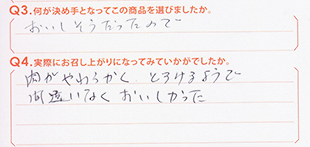 Q3.何が決め手となってこの商品を選びましたか。
おいしそうだったので
Q4.実際にお召し上がりになってみていかがでしたか。
肉がやわらかく とろけるようで
間違いなく おいしかった